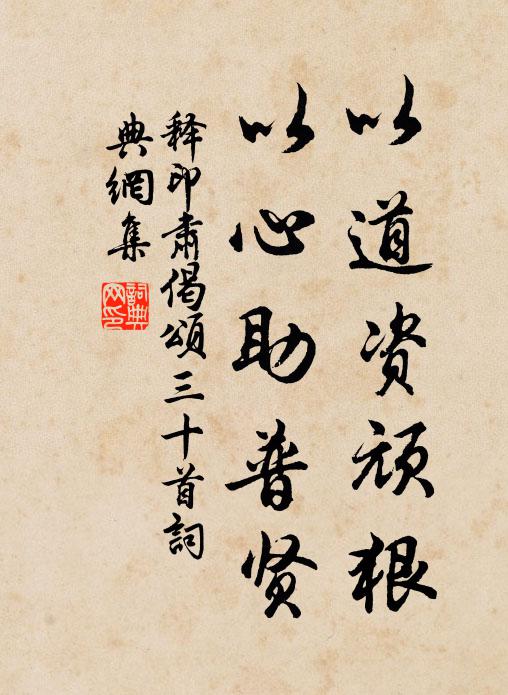 以道资顽狠
以心助普贤
释印肃偈颂三十首詞
典網集
詞典网印